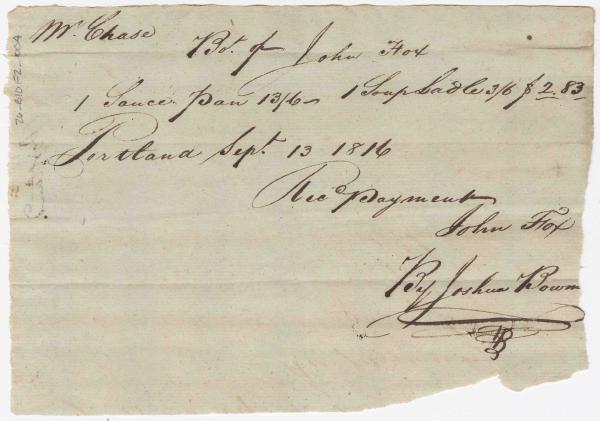 Mr. Chase
Bot. of John Fox
1 Sauce Pan 13/6 1 Soup Ladle 3/6 $ 2.83
Portland Sept. 13 1816
Recd payment
John Fox
By Joshua Bowm